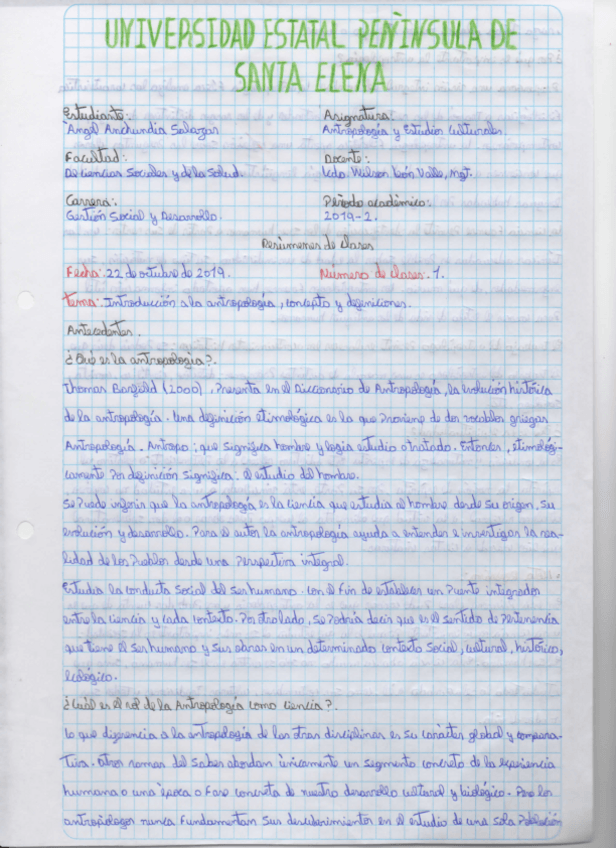 UNIVERSIDAD ESTATAL PENÌNSULA DE
SANTA ELENA
Estudiante: Asignatura:
Angel Anchundia Salazar Antropología y Estudios Culturales.
Facultad: Docente:
De Ciencias Sociales y de la Salud. Lcdo. Wilson León Valle, Mgt.
Carrera: Período académico:
Gestión Social y Desarrollo. 2019-2.
Resùmenes de clases
Fecha: 22 de octubre de 2019. Número de clases: 1.
Tema: Introducción a la antropología, concepto y definiciones.
Antecedentes.
¿Qué es la antropología?.
Thomas Barfield (2000), Presenta en el Diccionario de Antropología, la evolución histórica
de la antropología. Una definición etimológica es la que Proviene de dos vocablos griegos
Antropología. Antropo: que significa hombre y logia estudio o tratado. Entonces, etimológi-
camente Por definición significa: el estudio del hombre.
Se Puede inferir que la antropología es la ciencia que estudia al hombre desde su origen, su
evolución y desarrollo. Para el autor la antropología ayuda a entender e investigar la rea-
lidad de los Pueblos desde una Perspectiva integral.
Estudia la conducta social del ser humano. con el fin de establecer un Puente integrador
entre la ciencia y cada contexto. Por otro lado, se Podría decir que es el sentido de Pertenencia
que tiene el ser humano y sus obras en un determinado contexto social, cultural, histórico,
ecológico.
¿Cuál es el rol de la Antropología como ciencia?.
Lo que diferencia a la antropología de las otras disciplinas es su carácter global y compara-
tiva. Otras ramas del saber abordan ùnicamente un segmento concreto de la experiencia
humana o una època o fase concreta de nuestro desarrollo cultural y biológico. Pero los
antropòlogos nunca fundamentan sus descubrimientos en el estudio de una sola Población